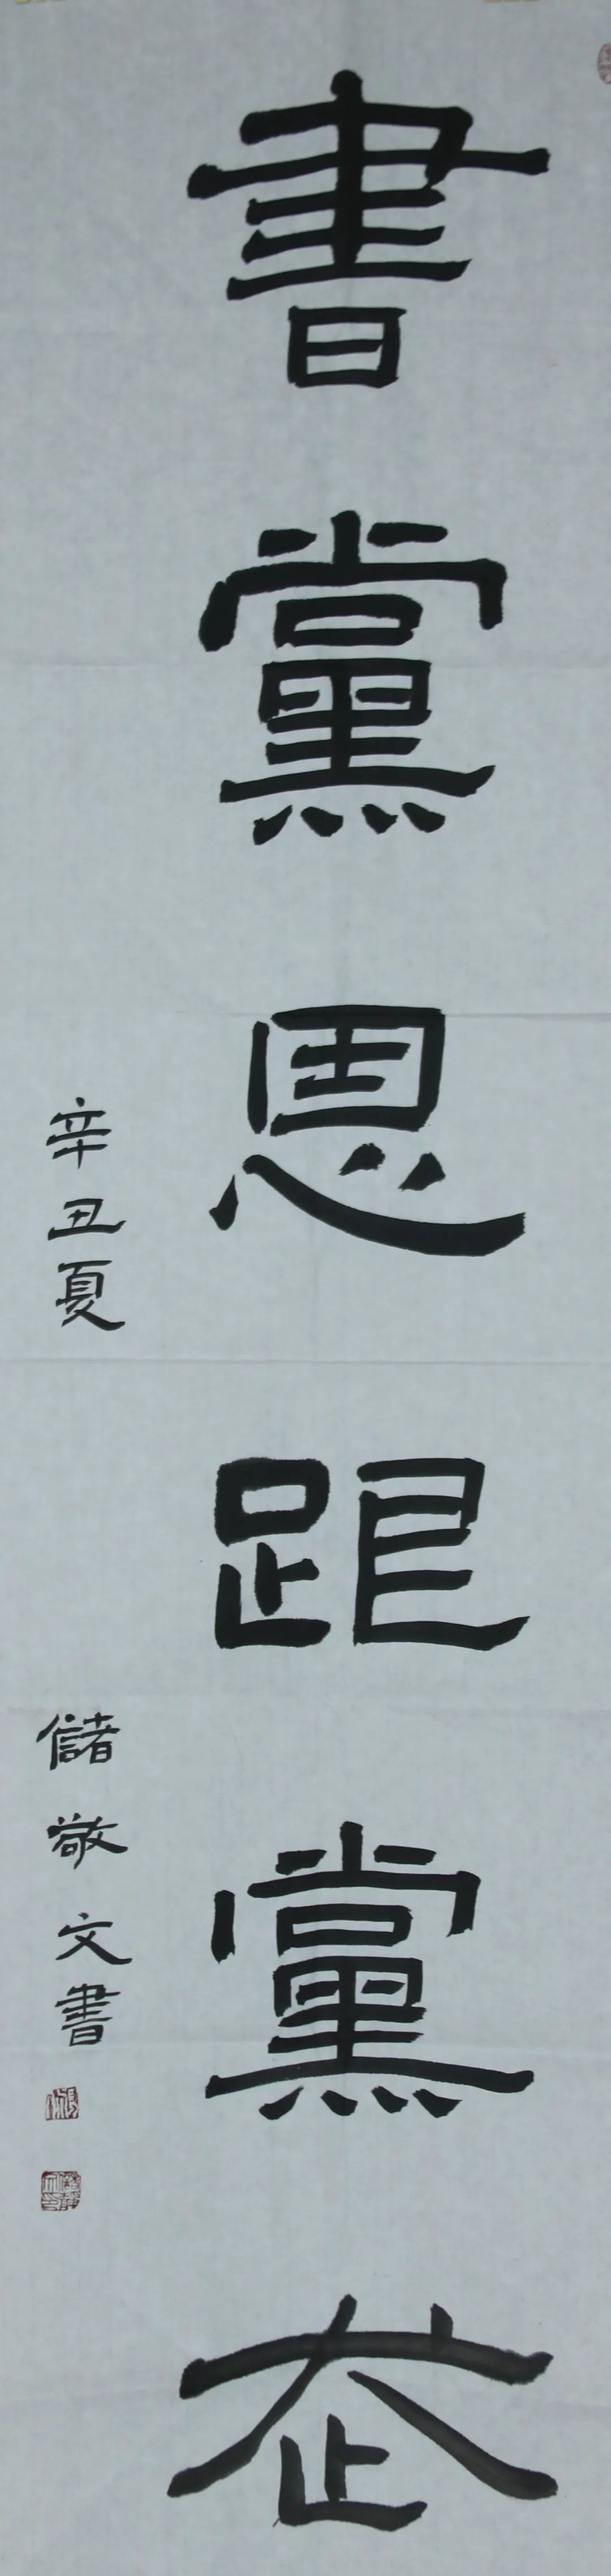 書黨恩跟黨走
辛丑夏 儲敬文書